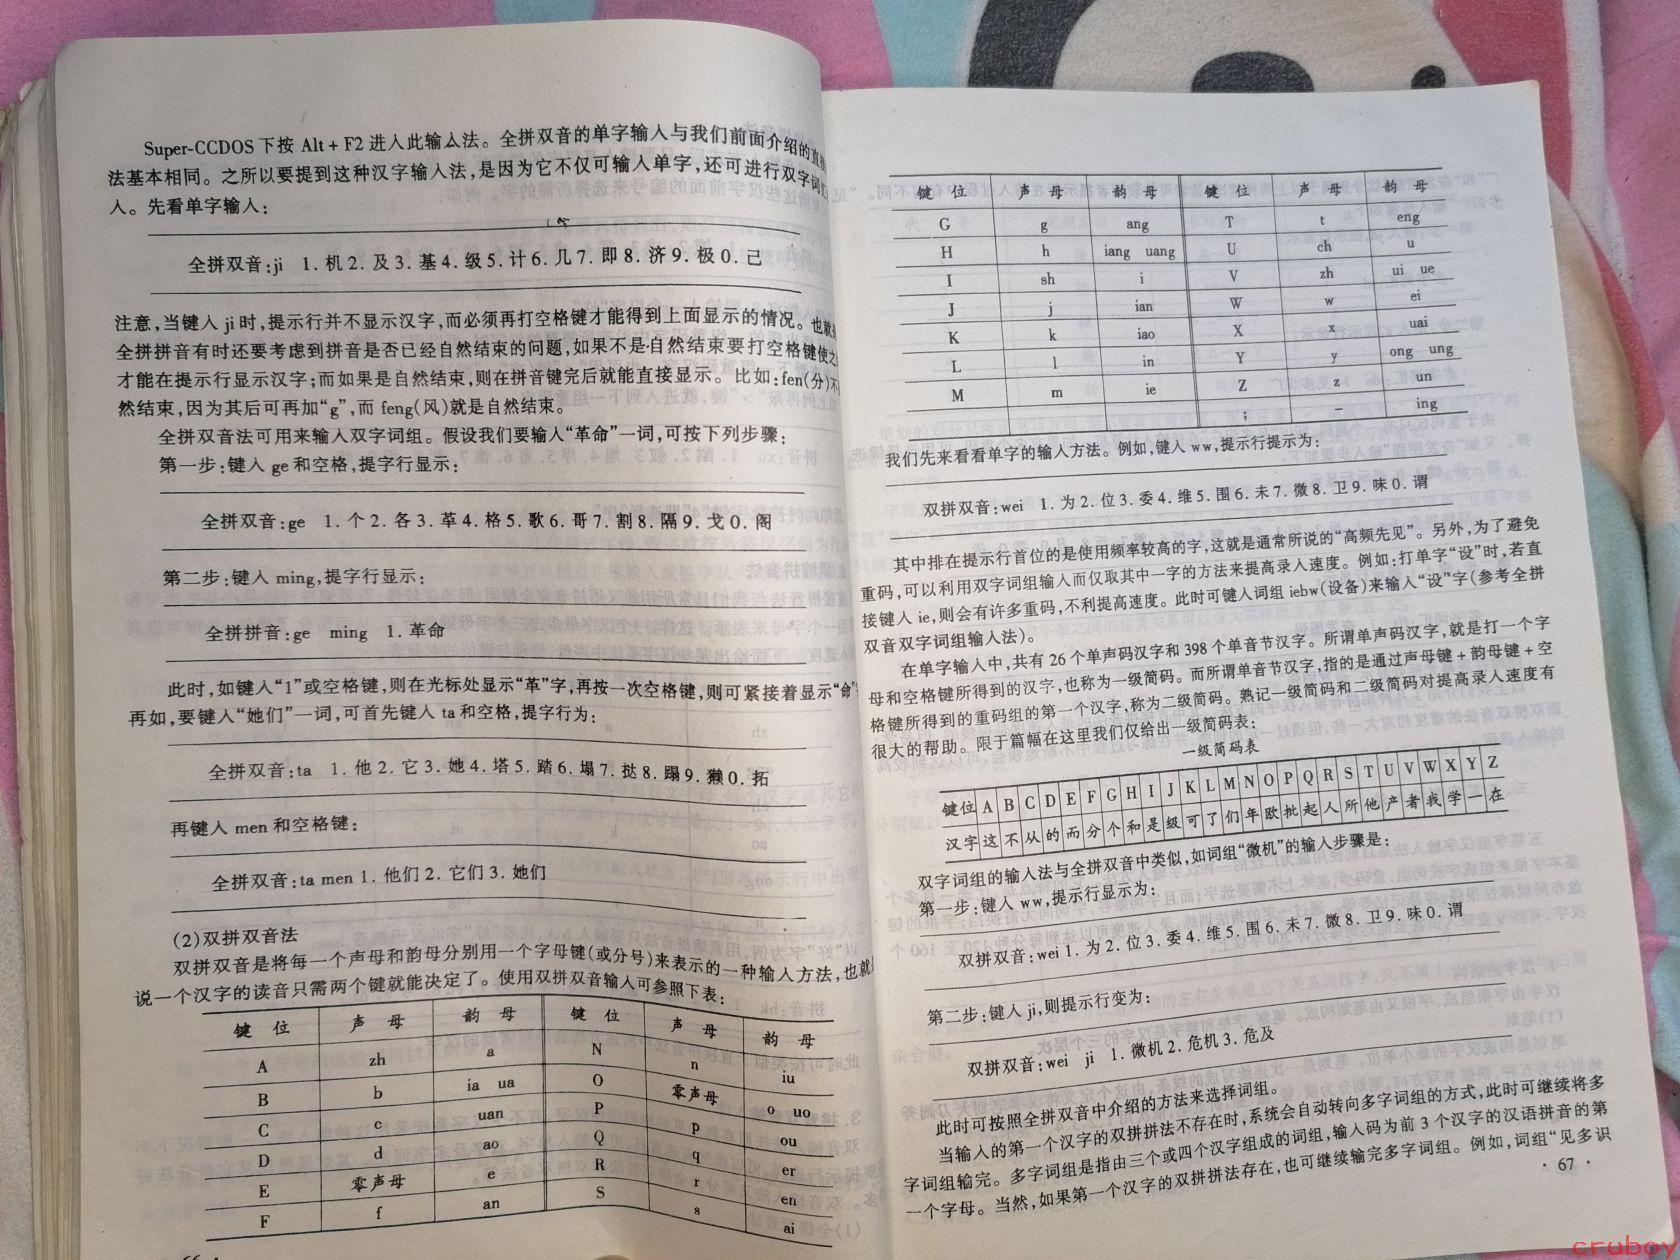 Super-CCDOS 下按 Alt + F2 进入此输入法。全拼双音的单字输入与我们前面介绍的直
法基本相同。之所以要提到这种汉字输入法,是因为它不仅可输入单字,还可进行双字词
入。先看单字输入:
全拼双音:ji 1. 机 2. 及 3. 基 4. 级 5. 计 6. 几 7. 即 8. 济 9. 极 0. 己
注意,当键入 ji 时,提示行并不显示汉字,而必须再打空格键才能得到上面显示的情况。也就
全拼拼音有时还要考虑到拼音是否已经自然结束的问题,如果不是自然结束要打空格键使之
才能在提示行显示汉字;而如果是自然结束,则在拼音键完后就能直接显示。比如:fen(分)不
然结束,因为其后可再加“g”,而 feng(风)就是自然结束。
全拼双音法可用来输入双字词组。假设我们要输入“革命”一词,可按下列步骤:
第一步:键入 ge 和空格,提字行显示:
全拼双音:ge 1. 个 2. 各 3. 革 4. 格 5. 歌 6. 哥 7. 割 8. 隔 9. 戈 0. 阁
第二步:键入 ming,提字行显示:
全拼拼音:ge ming 1. 革命
此时,如键入“1”或空格键,则在光标处显示“革”字,再按一次空格键,则可紧接着显示“命”
再如,要键入“她们”一词,可首先键入 ta 和空格,提字行为:
全拼双音:ta 1. 他 2. 它 3. 她 4. 塔 5. 踏 6. 塌 7. 挞 8. 蹋 9. 獭 0. 拓
再键入 men 和空格键:
全拼双音:ta men 1. 他们 2. 它们 3. 她们
(2)双拼双音法
双拼双音是将每一个声母和韵母分别用一个字母键(或分号)来表示的一种输入方法,也就
说一个汉字的读音只需两个键就能决定了。使用双拼双音输入可参照下表:
键 位 声 母 韵 母 键 位 声 母 韵 母
A zh a N n iu
B b ia ua O 零声母 o uo
C c uan P p ou
D d ao Q q er
E 零声母 e R r en
F f an S s ai
键 位 声 母 韵 母 键 位 声 母 韵 母
G g ang T t eng
H h iang uang U ch u
I sh i V zh ui ue
J j ian W w ei
K k iao X x uai
L l in Y y ong ung
M m ie Z z un
; – ing
我们先来看看单字的输入方法。例如,键入 ww,提示行提示为:
双拼双音:wei 1. 为 2. 位 3. 委 4. 维 5. 围 6. 未 7. 微 8. 卫 9. 味 0. 谓
其中排在提示行首位的是使用频率较高的字,这就是通常所说的“高频先见”。另外,为了避免
重码,可以利用双字词组输入而仅取其中一字的方法来提高录入速度。例如:打单字“设”时,若直
接键入 ie,则会有许多重码,不利提高速度。此时可键入词组 iebw(设备)来输入“设”字(参考全拼
双音双字词组输入法)。
在单字输入中,共有 26 个单声码汉字和 398 个单音节汉字。所谓单声码汉字,就是打一个字
母和空格键所得到的汉字,也称为一级简码。而所谓单音节汉字,指的是通过声母键 + 韵母键 + 空
格键所得到的重码组的第一个汉字,称为二级简码。熟记一级简码和二级简码对提高录入速度有
很大的帮助。限于篇幅在这里我们仅给出一级简码表:
一级简码表
键位 A B C D E F G H I J K L M N O P Q R S T U V W X Y Z
汉字 这 不 从 的 而 分 个 和 是 级 可 了 们 年 欧 批 起 人 所 他 产 者 我 学 一 在
双字词组的输入法与全拼双音中类似,如词组“微机”的输入步骤是:
第一步:键入 ww,提示行显示为:
双拼双音:wei 1. 为 2. 位 3. 委 4. 维 5. 围 6. 未 7. 微 8. 卫 9. 味 0. 谓
第二步:键入 ji,则提示行变为:
双拼双音:wei ji 1. 微机 2. 危机 3. 危及
此时可按照全拼双音中介绍的方法来选择词组。
当输入的第一个汉字的双拼拼法不存在时,系统会自动转向多字词组的方式,此时可继续将多
字词组输完。多字词组是指由三个或四个汉字组成的词组,输入码为前 3 个汉字的汉语拼音的第
一个字母。当然,如果第一个汉字的双拼拼法存在,也可继续输完多字词组。例如,词组“见多识
· 67 ·
cruboy